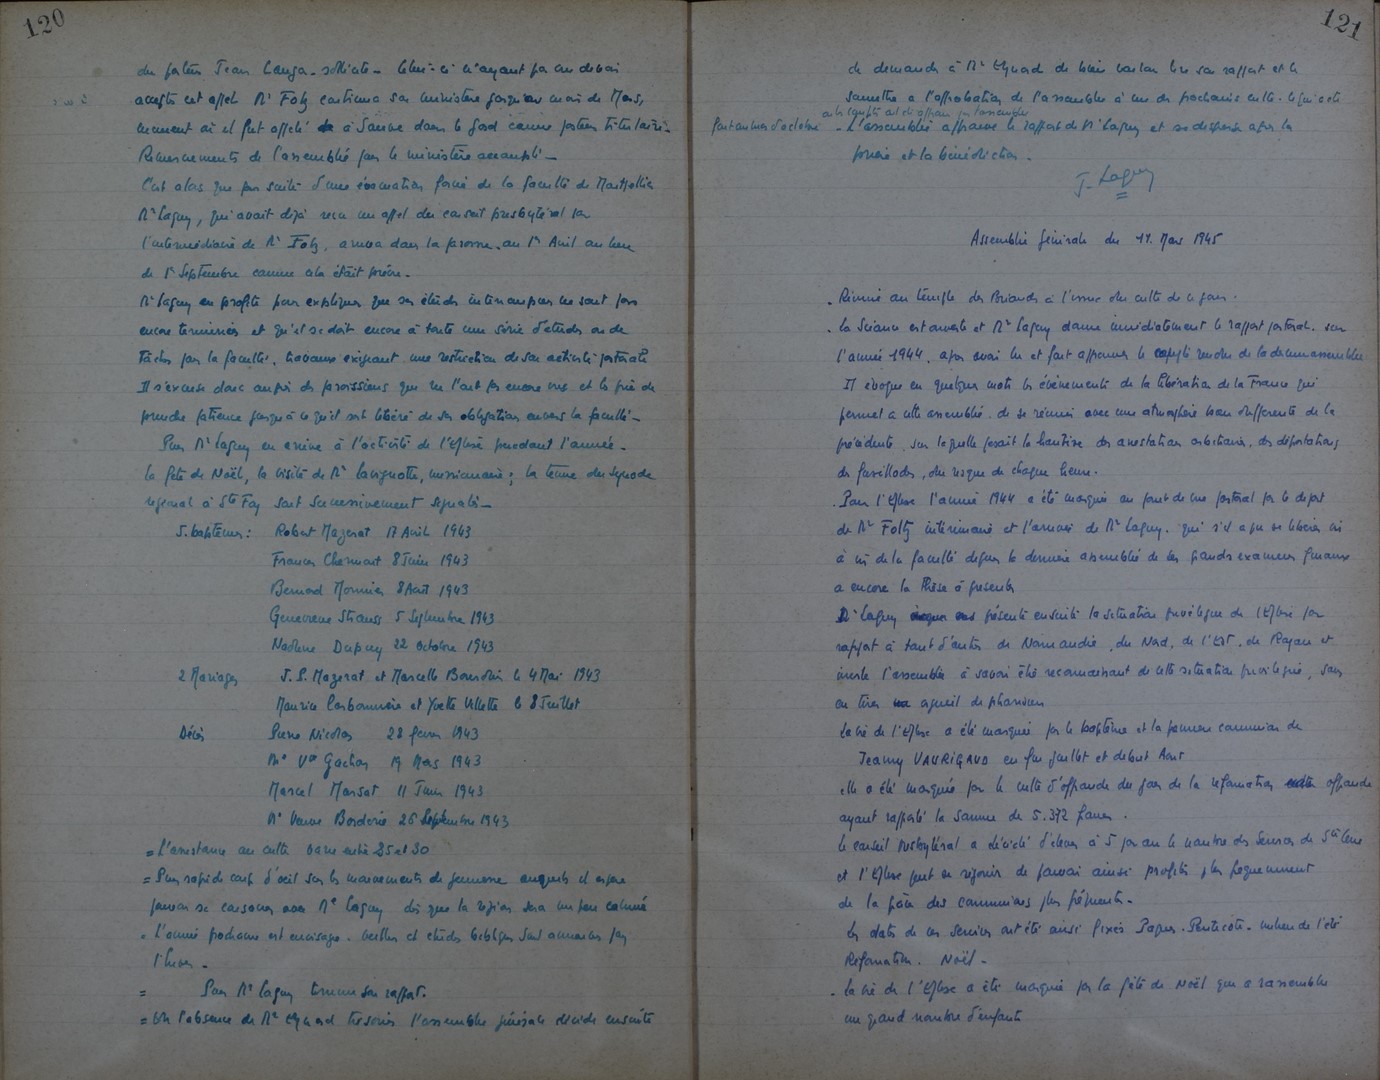 120
du pasteur Jean Cauga - sollicité - Celui-ci n'ayant pas cru devoir
accepter cet appel Mr Foltz continua son ministère jusqu'au mois de Mars,
moment où il fut appelé à Sauve dans le Gard comme pasteur titulaire -
Remerciements de l'assemblée pour le ministère accompli -
C'est alors que par suite d'une évacuation forcée de la faculté de Montpellier
Mr Laguy, qui avait déjà reçu un appel du conseil presbytéral par
l'intermédiaire de Mr Foltz, arriva dans la paroisse au 1er Avril au lieu
de 1er Septembre comme cela était prévu -
Mr Laguy en profite pour expliquer que ses études interrompues ne sont pas
encore terminées et qu'il se doit encore à toute une série d'études ou de
tâches pour la faculté, travaux exigeant une restriction de son activité pastorale
Il s'excuse donc auprès des paroissiens qui ne l'ont pas encore vus et les prie de
prendre patience jusqu'à ce qu'il soit libéré de ses obligations envers la faculté -
Puis Mr Laguy en arrive à l'activité de l'Eglise pendant l'année -
la fête de Noël, la visite de Mr Lavignotte, missionnaire ; la tenue du Synode
régional à Ste Foy sont successivement signalés -
5 baptêmes : Robert Mazerat 17 Avril 1943
Francis Chermart 8 Juin 1943
Bernard Monnier 8 Août 1943
Geneviève Strauss 5 Septembre 1943
Nadine Dupuy 22 Octobre 1943
2 Mariages J.P. Mazerat et Marcelle Bourdin le 4 Mai 1943
Maurice Carbonnière et Yvette Villette le 8 Juillet
Décès Pierre Nicolas 28 février 1943
Me Vve Gachon 19 Mars 1943
Marcel Marsat 11 Juin 1943
Me Veuve Borderie 26 Septembre 1943
= L'assistance au culte varie entre 25 et 30
= Puis rapide coup d'oeil sur les mouvements de jeunesse auxquels il espère
pouvoir se consacrer avec Me Laguy dès que la région sera un peu calmée
- L'année prochaine est envisagée. veillées et études bibliques sont annoncées pour
l'hiver -
= Puis Mr Laguy termine son rapport.
= En l'absence de Mr Eynard Trésorier l'assemblée générale décide ensuite
121
de demander à Mr Eynard de bien vouloir lire son rapport et le
soumettre à l'approbation de l'assemblée à un des prochains culte. ce qui a été
fait au mois d'octobre où les comptes ont été approuvés par l'assemblée
- L'assemblée approuve le rapport de Mr Laguy et se disperse après la
prière et la bénédiction.
J. Laguy
Assemblée Générale du 14 Mars 1945
. Réunie au temple des Briands à l'issue du culte de ce jour.
. La Séance est ouverte et Mr Laguy donne immédiatement le rapport pastoral sur
l'année 1944, après avoir lu et fait approuver le compte rendu de la dernière assemblée
Il évoque en quelques mots les évènements de la libération de la France qui
permet à cette assemblée de se réunir avec une atmosphère bien différente de la
précédente, sur laquelle pesait la hantise des arrestations arbitraires, des déportations,
des fusillades, du risque de chaque heure.
. Pour l'Eglise l'année 1944 a été marquée au point de vue pastoral par le départ
de Mr Foltz intérimaire et l'arrivée de Mr Laguy. qui s'il a pu se libérer vis
à vis de la faculté depuis la dernière assemblée de ses grands examens finaux
a encore la thèse à présenter
Mr Laguy présente ensuite la situation privilégiée de l'Eglise par
rapport à tant d'autres de Normandie, du Nord, de l'Est, de Royan et
invite l'assemblée à savoir être reconnaissant de cette situation privilégiée, sans
en tirer orgueil de pharisien
La vie de l'Eglise a été marquée par le baptême et la première communion de
Jeanny VAURIGAUD en fin juillet et début Août
elle a été marquée par le culte d'offrande du jour de la réformation offrande
ayant rapporté la somme de 5.372 francs.
Le conseil Presbytéral a décidé d'élever à 5 par an le nombre des Services de Ste Cène
et l'Eglise peut se réjouir de pouvoir ainsi profiter plus fréquemment
de la joie des communions plus fréquentes -
Les dates de ces services ont été ainsi fixées Pâques - Pentecôte - milieu de l'été
Réformation - Noël -
. La vie de l'Eglise a été marquée par la fête de Noël qui a rassemblé
un grand nombre d'enfants